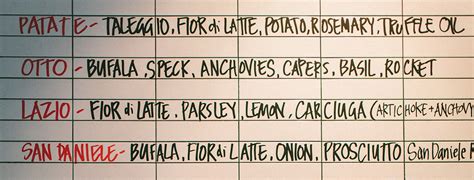 PATATE - TALEGGIO, FIOR di LATTE, POTATO, ROSEMARY, TRUFFLE OIL
OTTO - BUFALA, SPECK, ANCHOVIES, CAPERS, BASIL, ROCKET
LAZIO - FIOR di LATTE, PARSLEY, LEMON, CARCIUGA (ARTICHOKE + ANCHOVY
SAN DANIELE - BUFALA, FIOR di LATTE, ONION, PROSCIUTTO San Daniele